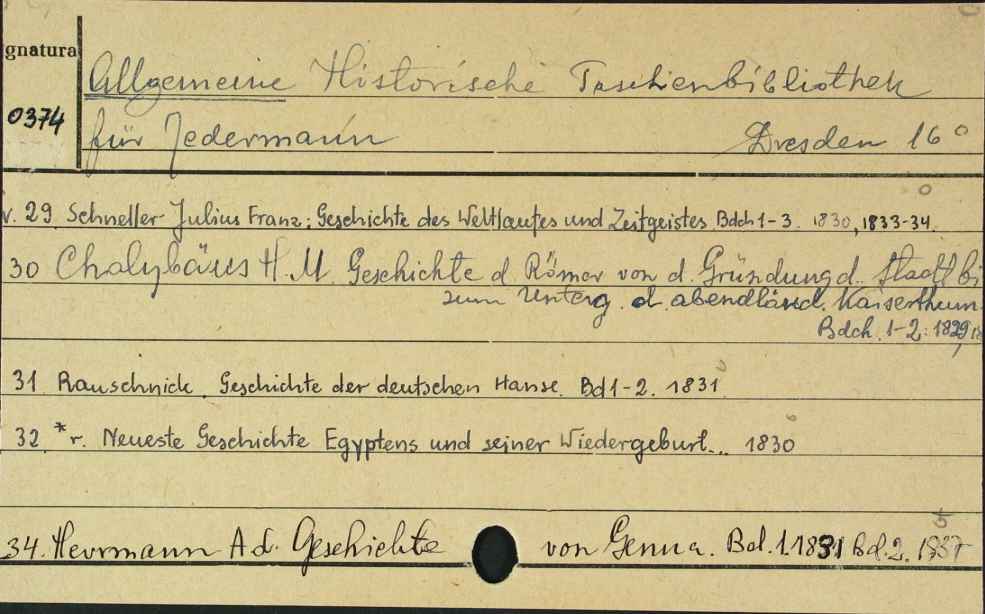 gnatura
Allgemeine Historische Taschenbibliothek
0374
für Jedermann Dresden 16°
v. 29. Schneller Julius Franz: Geschichte des Weltlaufes und Zeitgeistes Bdch 1-3. 1830, 1833-34.
30 Chalybäus H. M. Geschichte d Römer von d. Gründung d. Stadt bi
zum Unterg. d. abendländ. Kaiserthum
Bdch. 1-2: 1829,
31 Rauschnick. Geschichte der deutschen Hanse. Bd 1-2. 1831
32 *r. Neueste Geschichte Egyptens und seiner Wiedergeburt... 1830
34. Herrmann Ad. Geschichte von Genua. Bd. 1. 1831 Bd. 2. 1937